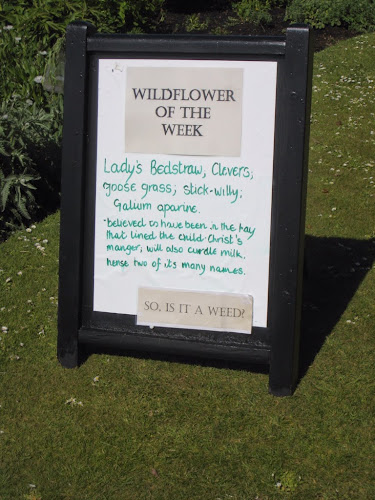 WILDFLOWER
OF THE
WEEK
Lady's Bedstraw, Clevers;
goose grass; stick-willy;
Galium aparine.
-believed to have been in the hay
that lined the child Christ's
manger; will also curdle milk.
hense two of its many names.
SO, IS IT A WEED?